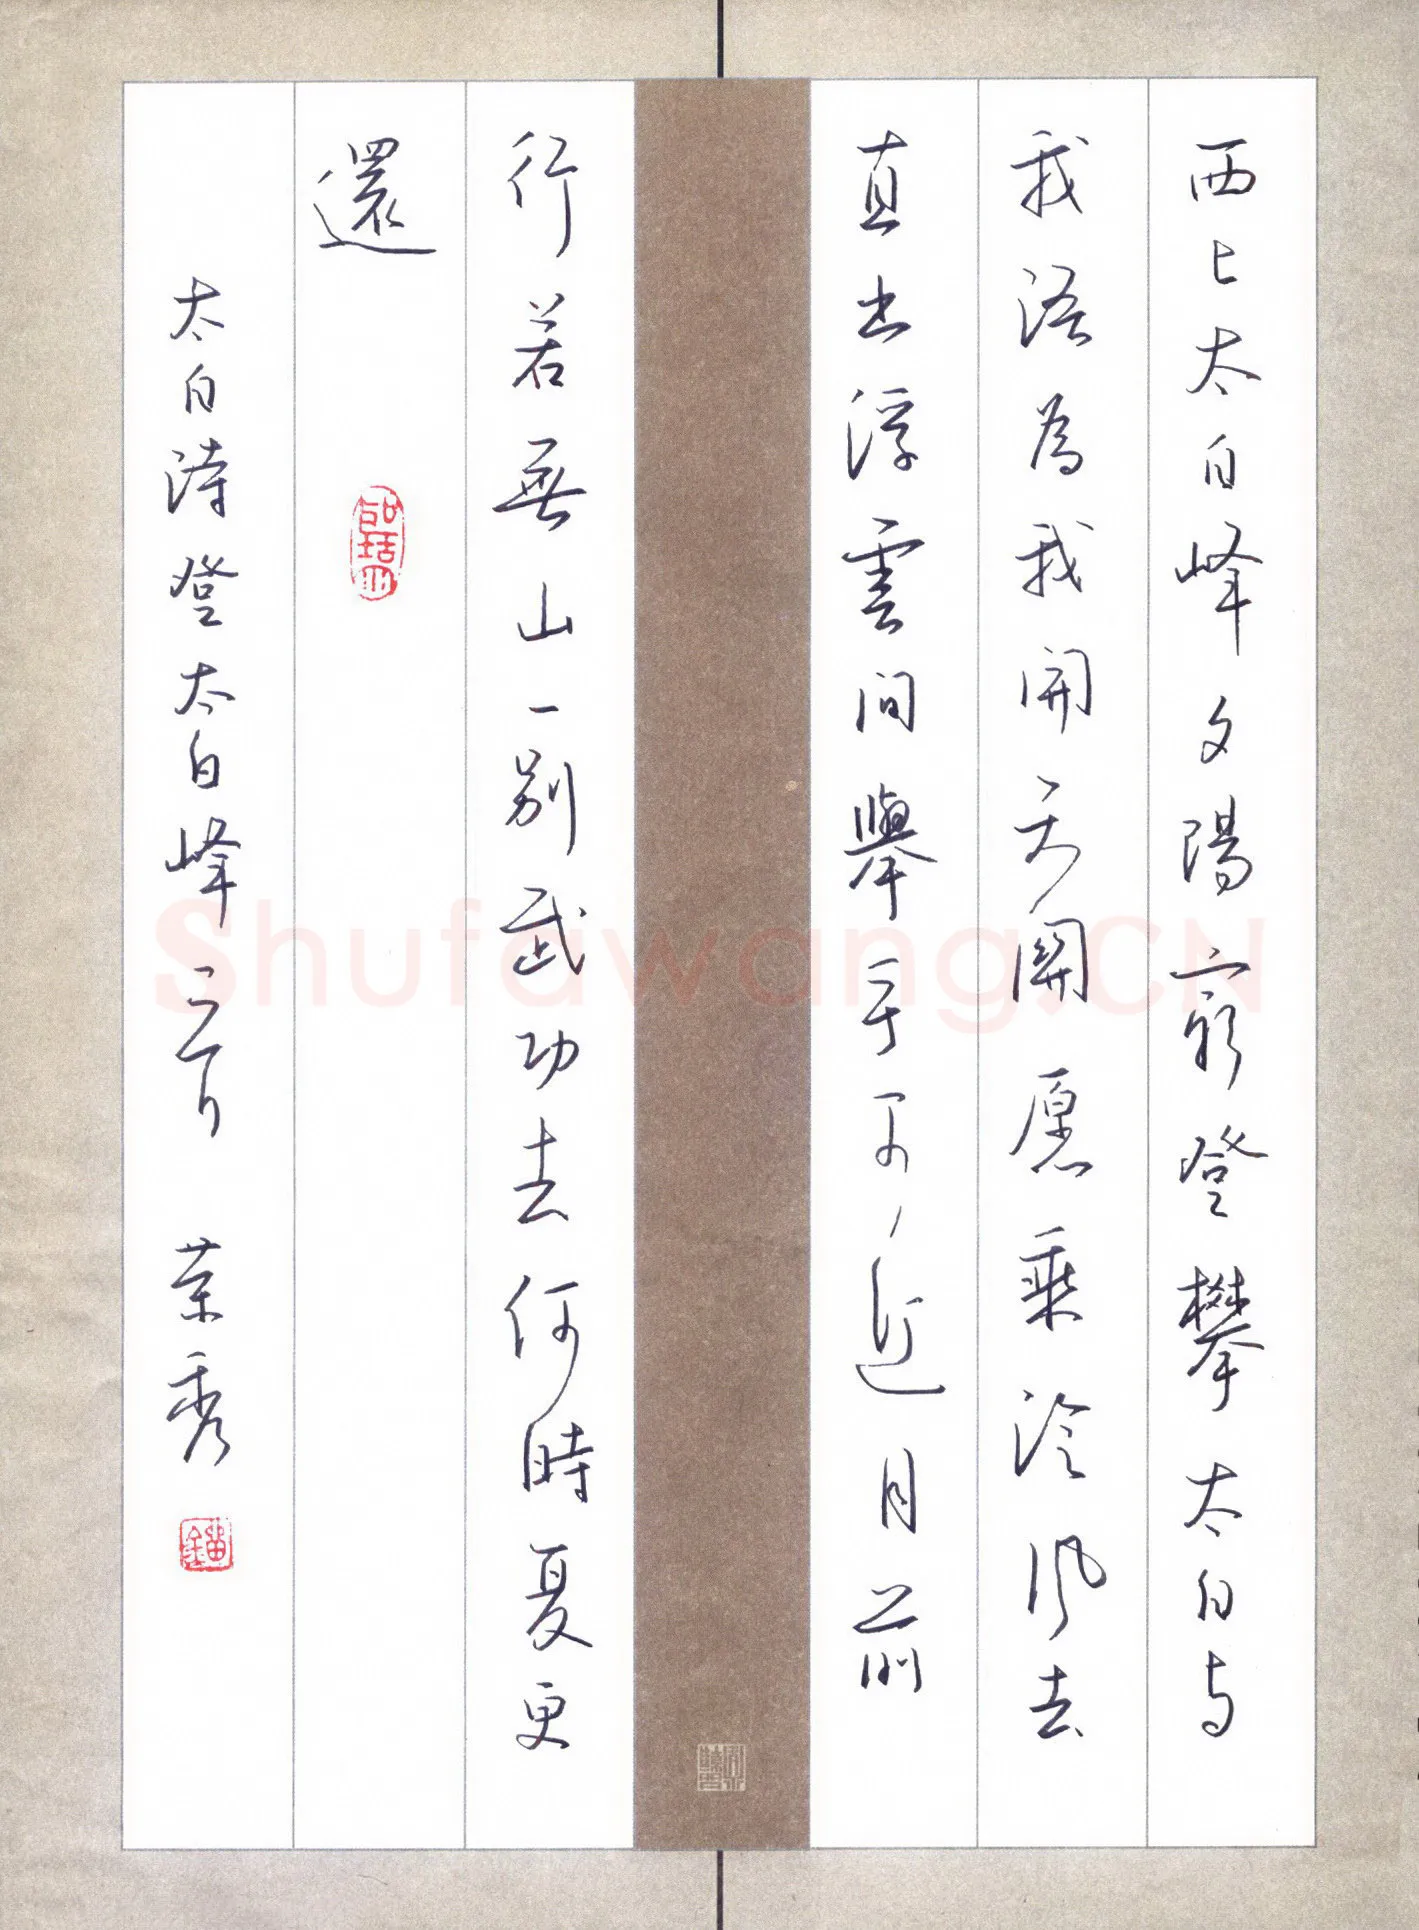 西上太白峰夕陽窮登攀太白与
我語為我開天關愿乘泠風去
直出浮雲間舉手可近月前
行若無山一別武功去何時复更
還
太白詩登太白峰一首 荣秀
Shufawang.CN